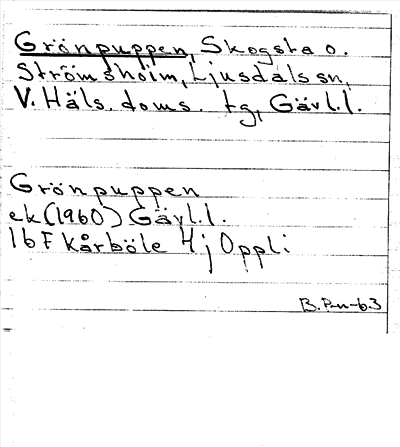 Grönpuppen, Skogsta o.
Strömsholm, Ljusdals sn,
V. Häls. doms. tg, Gävl.l.
Grönpuppen
ek (1960) Gävl.l.
16 F Kårböle 4 j Oppli
B. Pm-63